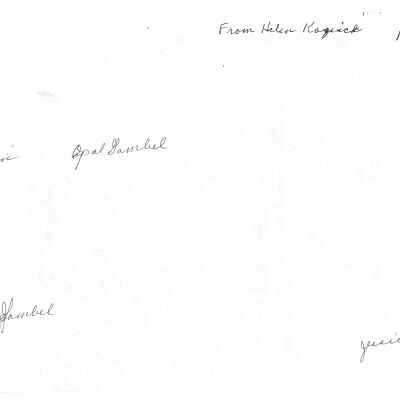 From Helen Kozick
Opal Gambel
Gambel
Jessie